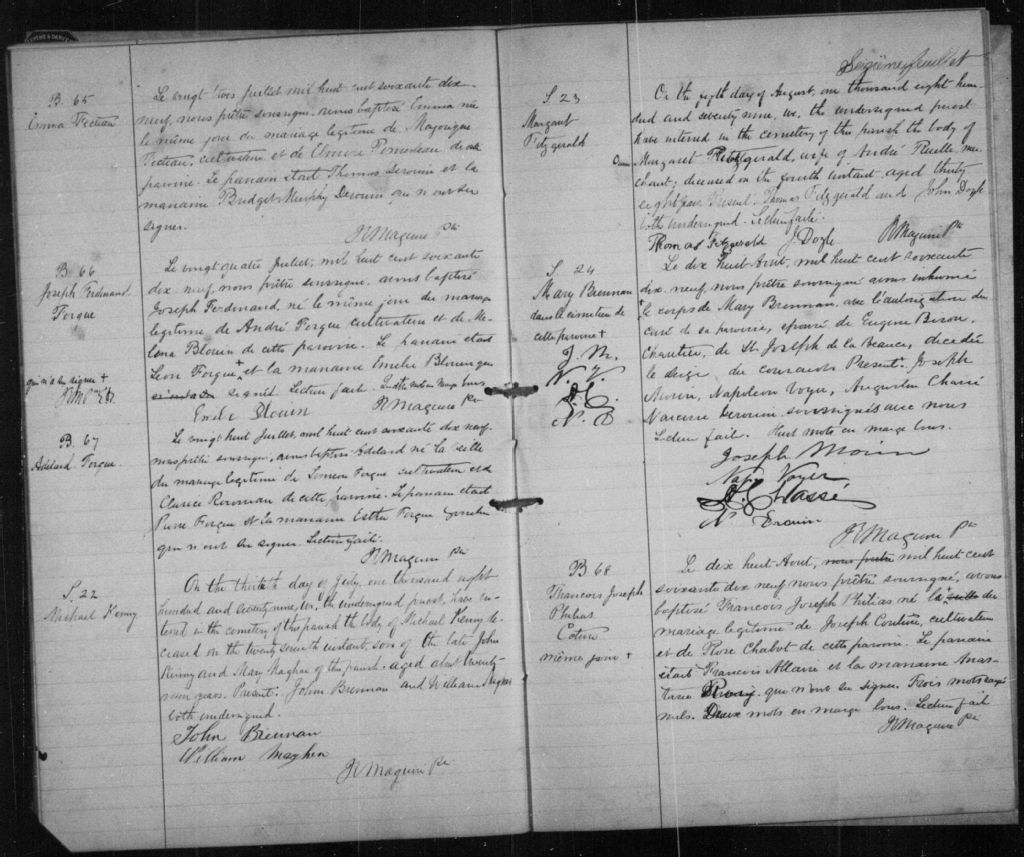 B. 65
Emma Fecteau
Le vingt trois Juillet mil huit cent soixante dix
neuf, nous prêtre soussigné, avons baptisé Emma née
le même jour du mariage légitime de Majorique
Fecteau, cultivateur et de Elmire Pomerleau de cette
paroisse. Le parrain était Thomas Derouin et la
marraine Bridget Murphy Derouin qui n'ont su
signer.
R Maguire Ptre
B 66
Joseph Ferdinand
Forgue
Le vingt quatre Juillet, mil huit cent soixante
dix-neuf, nous prêtre soussigné, avons baptisé
Joseph Ferdinand, né le même jour du mariage
légitime de André Forgue cultivateur et de
Blouin de cette paroisse. Le parrain était
Léon Forgue + et la marraine Emelie Blouin qui
signé. Lecture faite. mots en marge bons
qui n'a su signer +
R M Ptr
Emilie Blouin R Maguire Ptre
B. 67
Adélard Forgue
Le vingt huit Juillet, mil huit cent soixante dix neuf
nous prêtre soussigné, avons baptisé Adélard né la veille
du mariage légitime de Forgue cultivateur et de
Clarice de cette paroisse. Le parrain était
Pierre Forgue et la marraine Esther Forgue
qui n'ont su signer. Lecture faite.
R Maguire Ptre
S. 22
Michael Kenny
On the thirtieth day of July, one thousand eight
hundred and seventy nine, we, the undersigned priest, have in-
terred in the cemetery of this parish the body of Michael Kenny de-
ceased on the twenty seventh instant, son of the late John
Kenny and Mary Maghan of the parish, aged about twenty-
years. Present: John Brennan and William
both undersigned.
John Brennan
William Maghen
R Maguire Ptre
Seizième feuillet
S 23
Margaret
Fitzgerald
On the fifth day of August, one thousand eight hun-
dred and seventy nine, we, the undersigned priest
have interred in the cemetery of this parish the body of
Margaret Fitzgerald, wife of André Ruelle, mer-
chant; deceased on the fourth instant, aged thirty
eight years. Present: Thomas Fitzgerald and John Doyle
both undersigned. Lecture faite.
Thomas Fitzgerald J Doyle R Maguire Ptre
S. 24
Mary Brennan
dans le cimetière de
cette paroisse +
J. M.
N. V.
A. C.
N. D
Le dix huit Aout, mil huit cent soixante
dix-neuf, nous prêtre soussigné avons inhumé
+ le corps de Mary Brennan, avec l'autorisation du
curé de sa paroisse, épouse de Eugène Bizon,
Charretier, de St Joseph de la Beauce, décédée
le seize du courant. Present: Joseph
Morin, Napoléon Voyer, Augustin Chassé
Narcisse Derouin soussignés avec nous
Lecture faite. Huit mots en marge bons.
Joseph Morin
Nap. Voyer
A. C Hassé
N Erouin
R Maguire Ptre
B 68
Francois Joseph
Philias
Coture
même jour +
Le dix huit Aout, nous prêtre mil huit cent
soixante dix neuf nous prêtre soussigné, avons
baptisé Francois Joseph Philias né le veille du
mariage légitime de Joseph Couture, cultivateur
et de Rose Chabot de cette paroisse. Le parrain
était Francois Allaire et la marraine Anas-
tasie qui n'ont su signer. Trois mots rayés
nuls. Deux mots en marge bons. Lecture faite
R Maguire Ptre